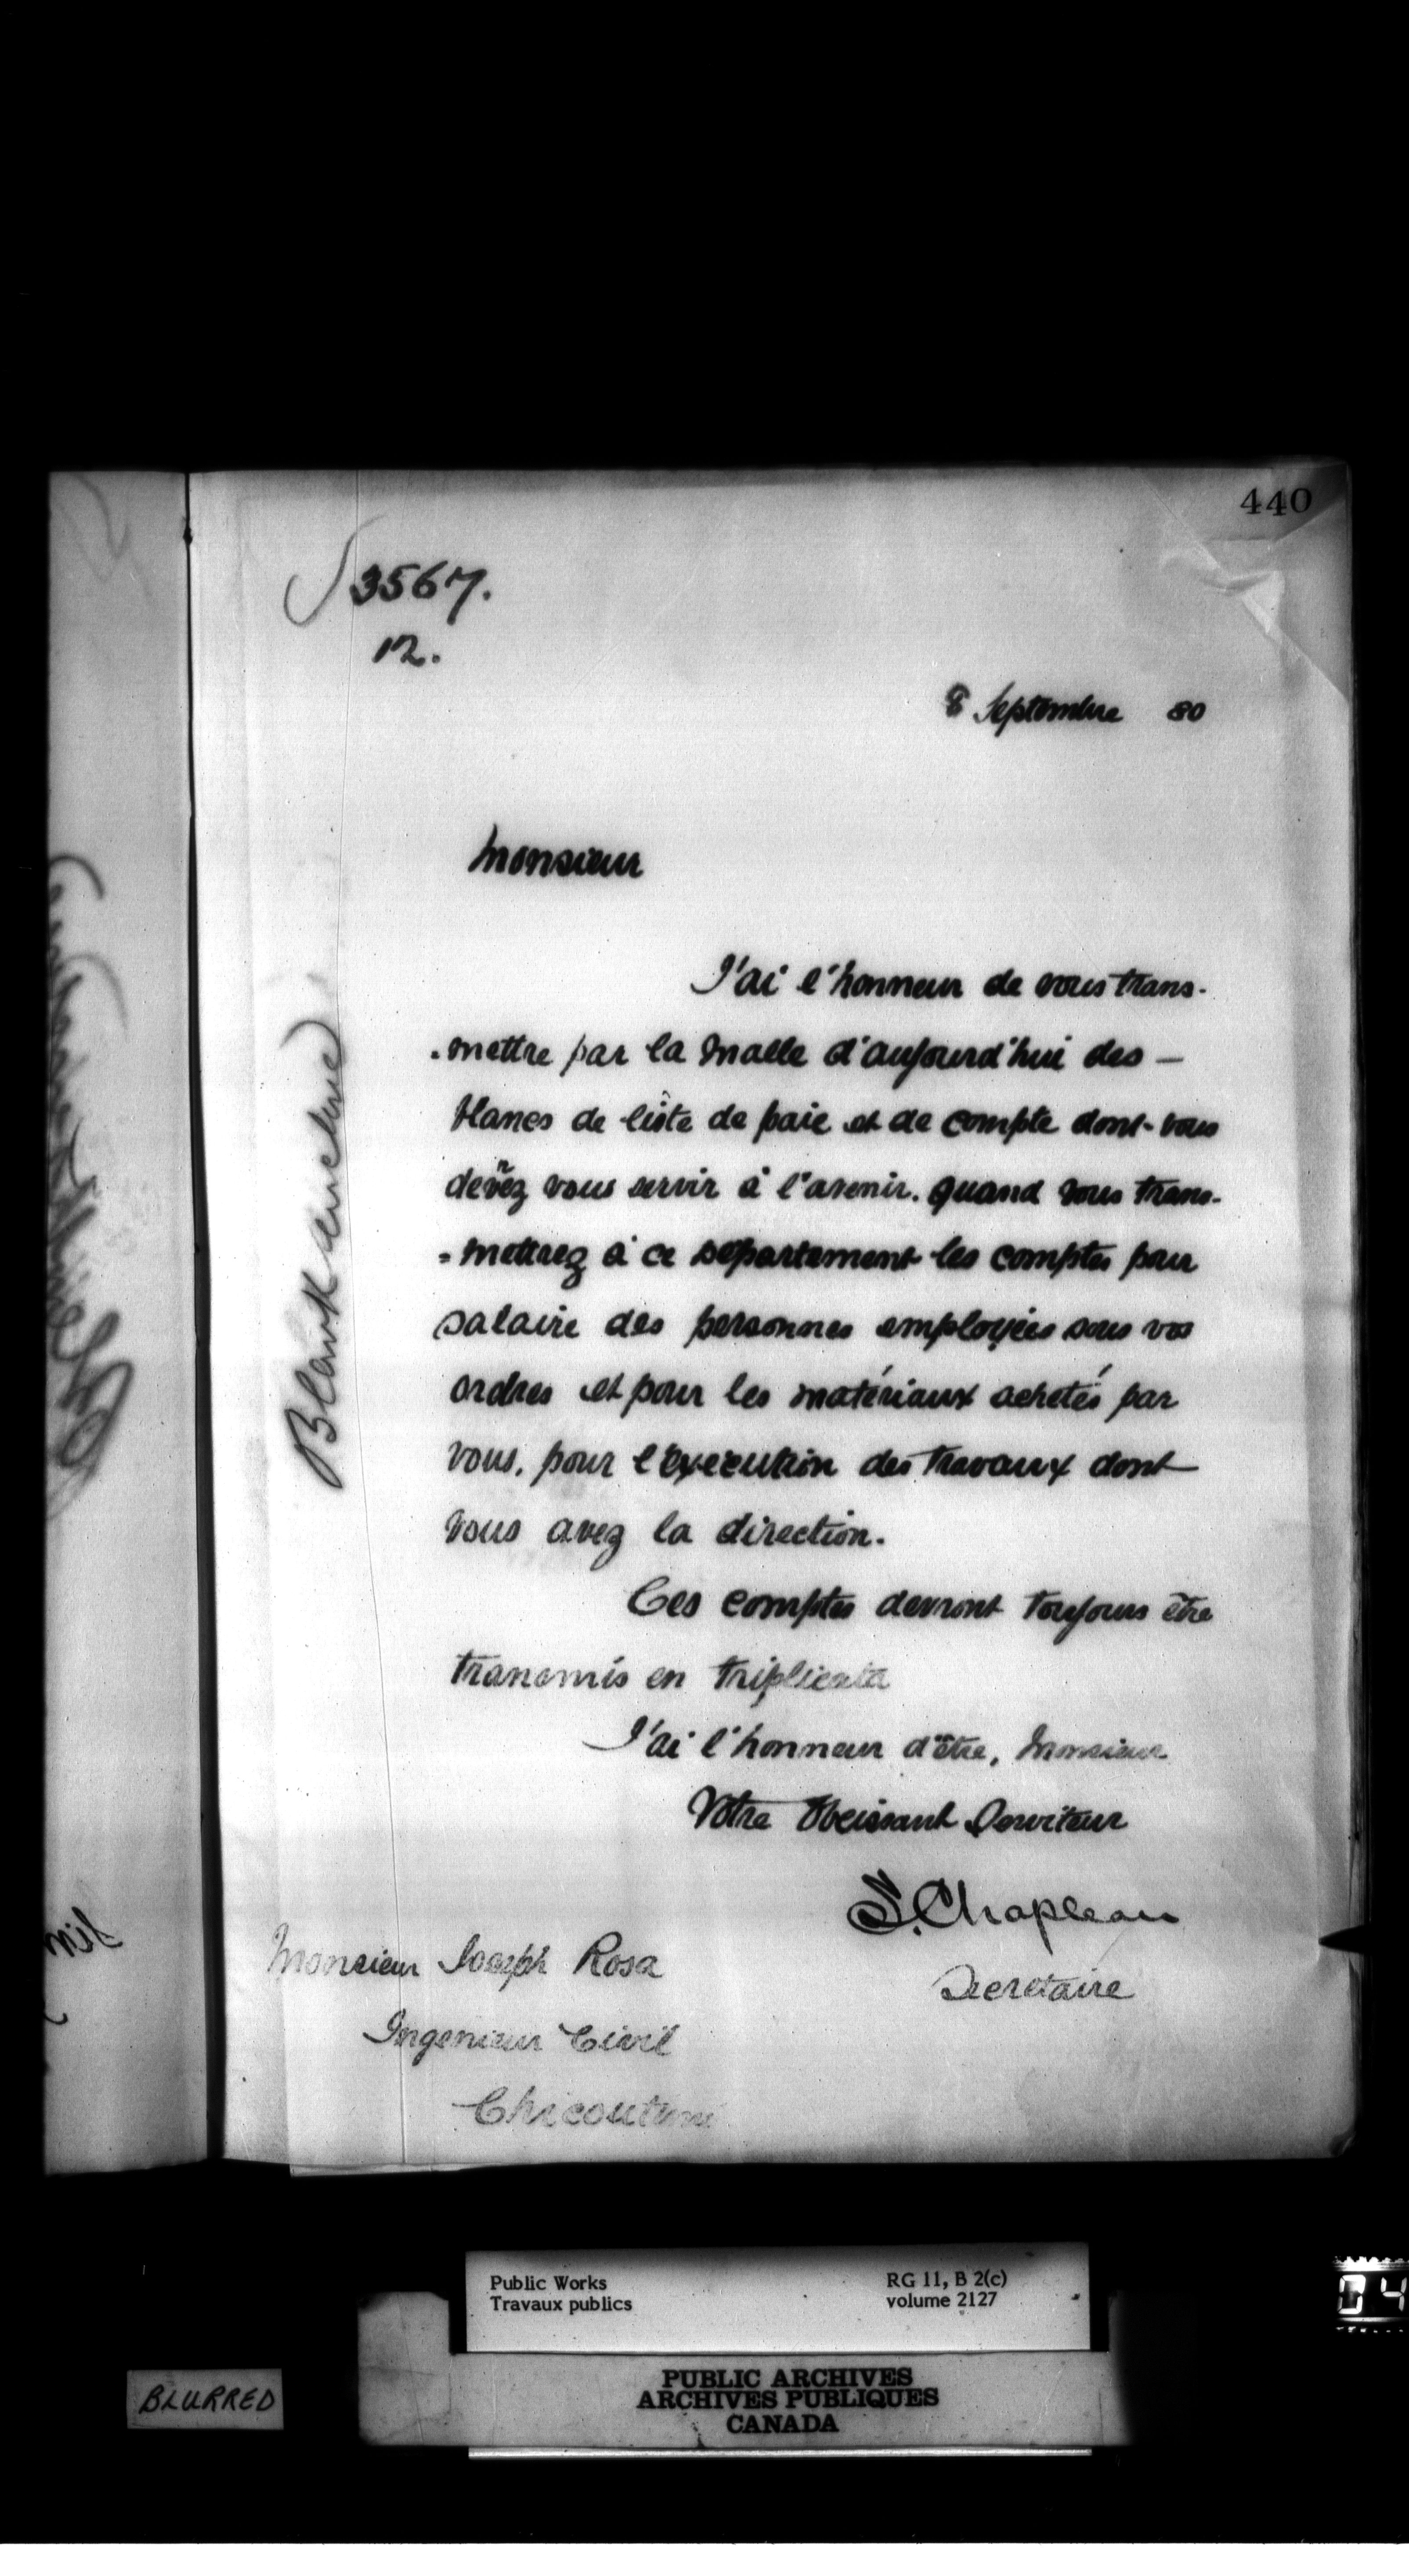 440
3567.
12.
8 Septembre 80
Monsieur
J'ai l'honneur de vous trans-
-mettre par la malle d'aujourd'hui des —
blancs de liste de paie et de compte dont vous
devrez vous servir à l'avenir. quand vous trans-
=mettrez à ce département les comptes pour
salaire des personnes employées sous vos
ordres et pour les matériaux achetés par
vous, pour l'execution des travaux dont
vous avez la direction.
Ces comptes devront toujours être
transmis en triplicata
J'ai l'honneur d'être, Monsieur
Votre Obeissant Serviteur
S. Chapleau
Secretaire
Monsieur Joseph Rosa
Ingenieur Civil
Chicoutimi
Blank
Public Works
Travaux publics
RG 11, B 2(c)
volume 2127
BLURRED
PUBLIC ARCHIVES
ARCHIVES PUBLIQUES
CANADA
04